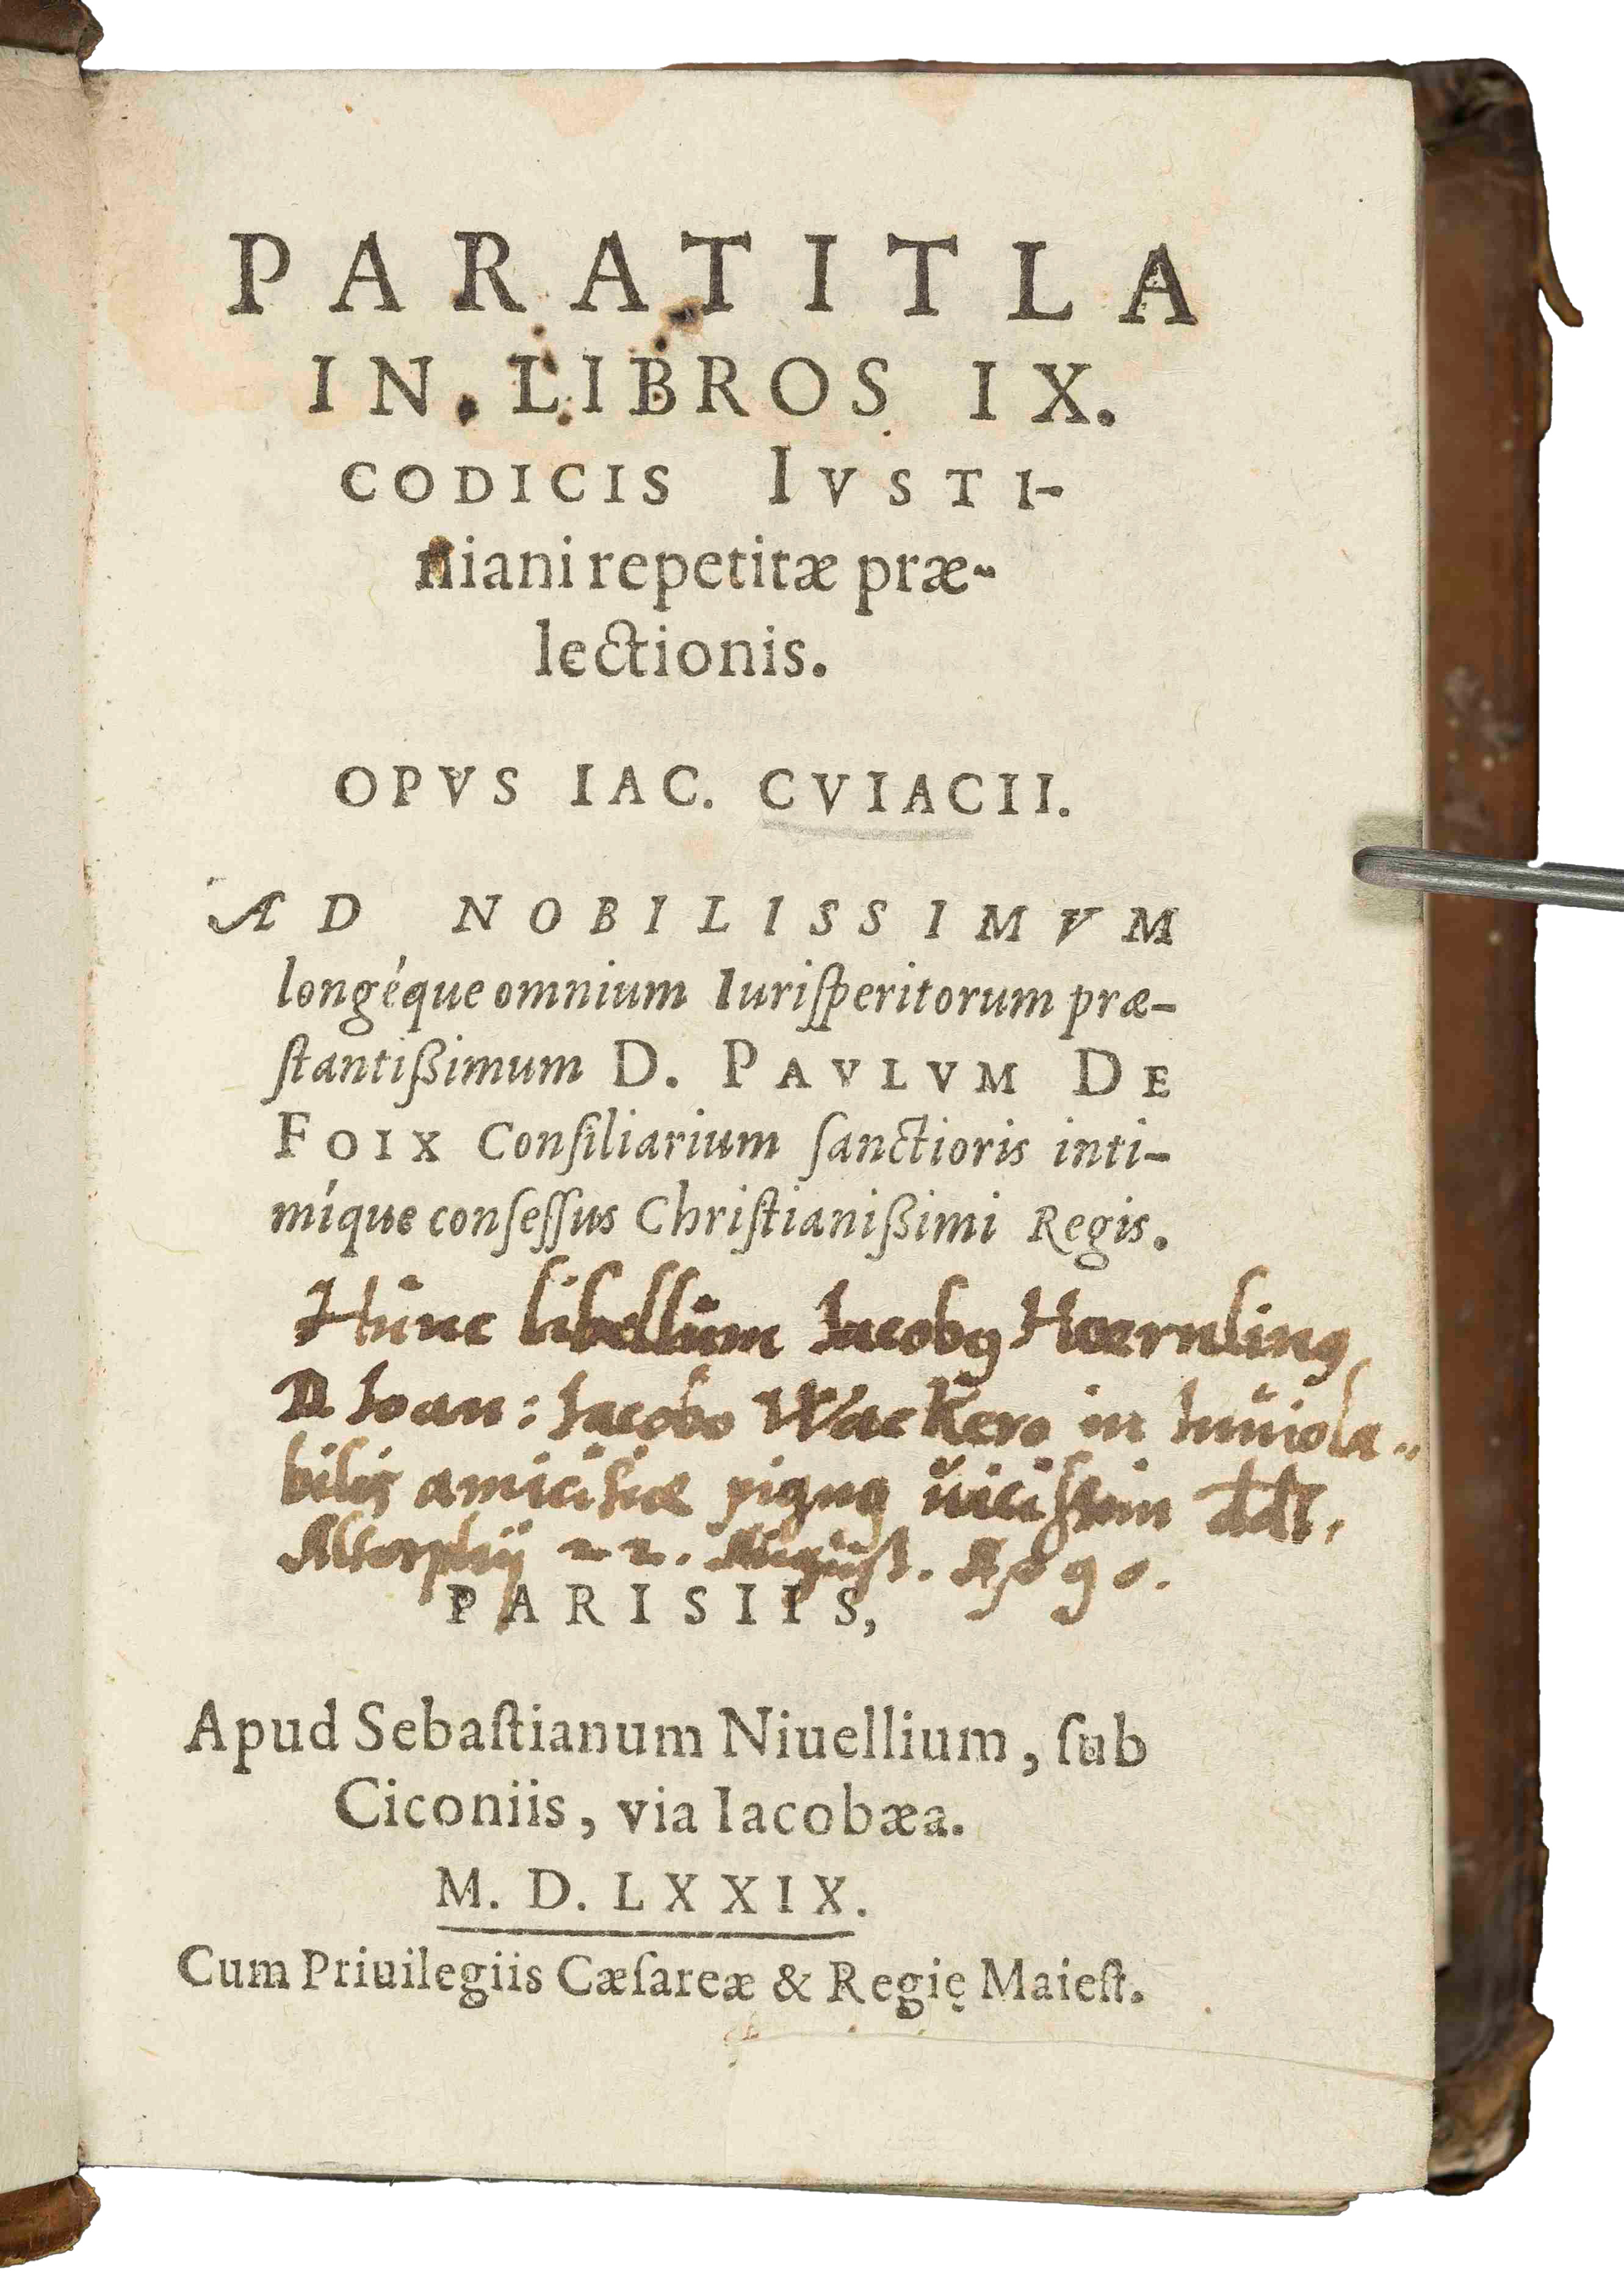 PARATITLA
IN LIBROS IX.
CODICIS IVSTI-
niani repetitæ præ-
lectionis.
OPVS IAC. CVIACII.
AD NOBILISSIMVM
longéque omnium Iuriſperitorum præ-
ſtantißimum D. PAVLVM DE
FOIX Conſiliarium ſanctioris inti-
míque conſeſſus Chriſtianißimi Regis.
Hunc libellum Iacobꝰ Hoernlinꝰ
D. Ioan: Jacobo Wackero in Inuiola-
bilis amicitiæ pignꝰ uiciſſim ddt,
Altorphij 22. Auguſt. Aº 90.
PARISIIS,
Apud Sebaſtianum Niuellium, ſub
Ciconiis, via Iacobæa.
M. D. LXXIX.
Cum Priuilegiis Cæſareæ & Regię Maieſt.